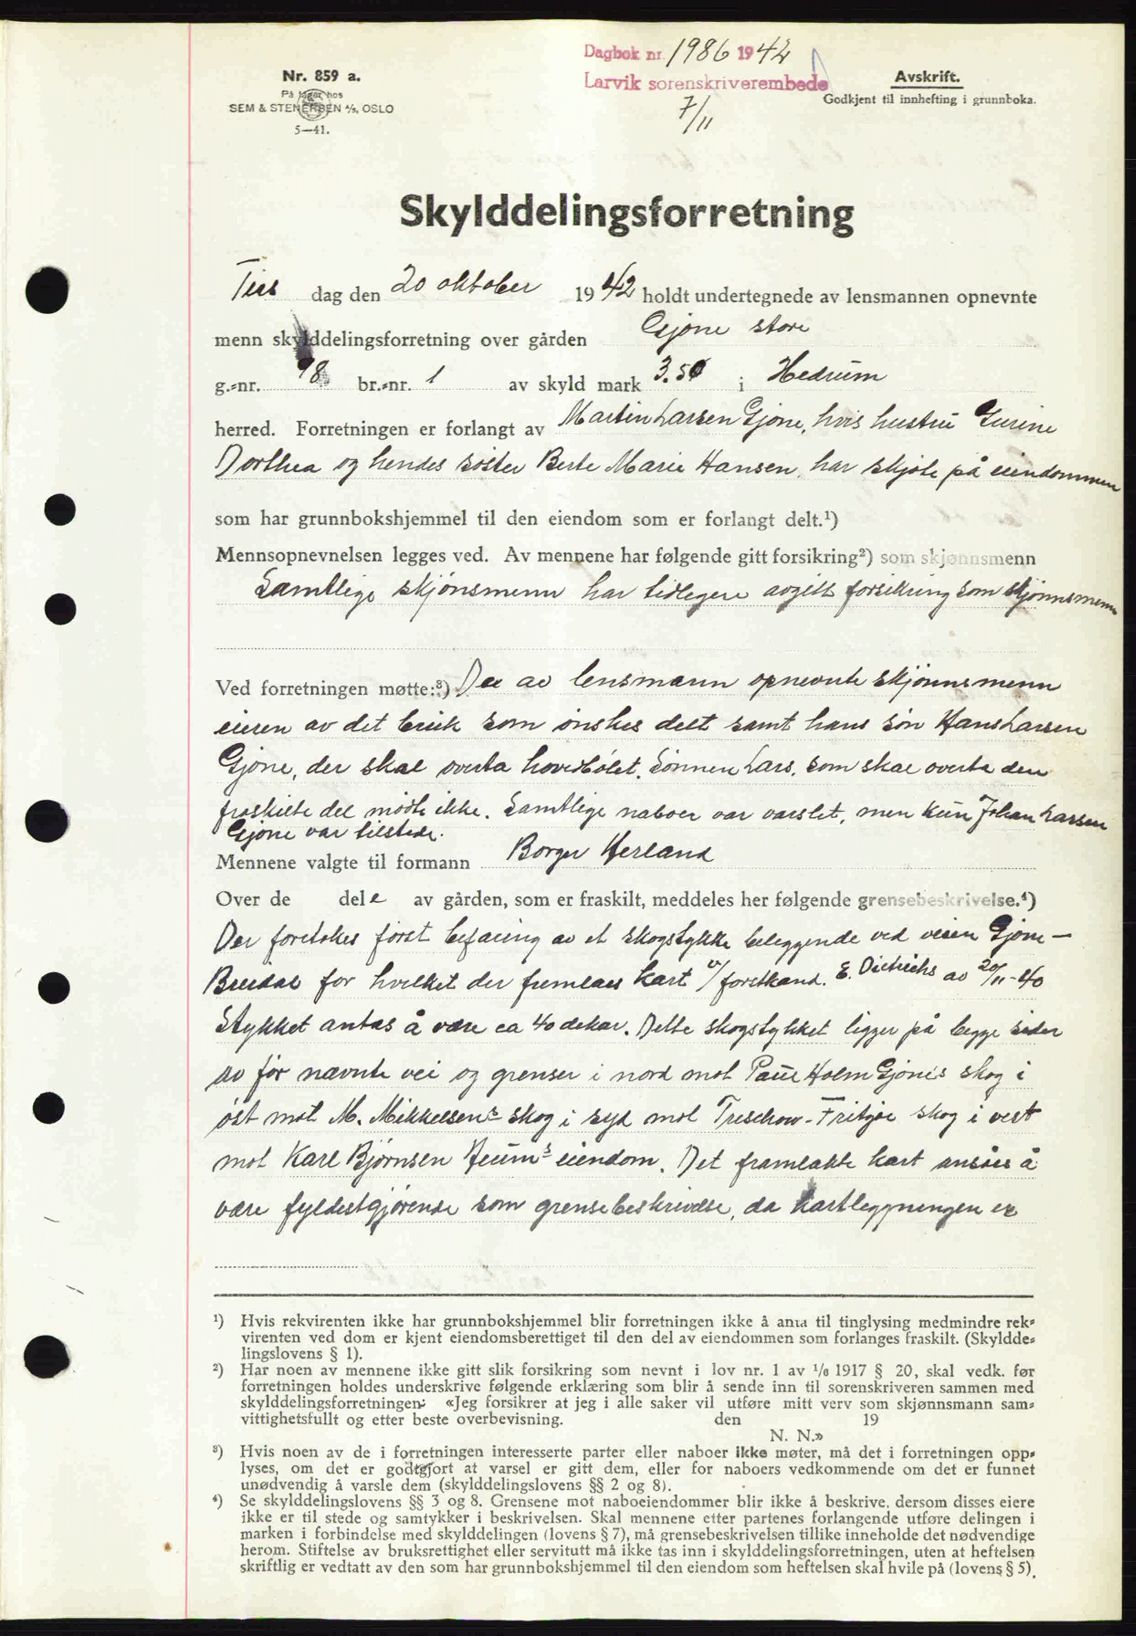 Dagbok nr. 1986 1942
Larvik sorenskriverembede
7/11
Nr. 859 a.
På lager hos
SEM & STENERSEN A/S, OSLO
5—41.
Avskrift.
Godkjent til innhefting i grunnboka.
Skylddelingsforretning
Tirs dag den 20 oktober 1942 holdt undertegnede av lensmannen opnevnte
menn skylddelingsforretning over gården Gjöne store
g.-nr. 98 br.-nr. 1 av skyld mark 3.50 i Hedrum
herred. Forretningen er forlangt av Martin Larsen Gjöne, hvis hustru Gurine
Dorthea og hendes söster Berte Marie Hansen, har skjöte på eiendommen
som har grunnbokshjemmel til den eiendom som er forlangt delt.¹)
Mennsopnevnelsen legges ved. Av mennene har følgende gitt forsikring²) som skjønnsmenn
Samtlige skjönsmenn har tidligere avgitt forsikring som skjönnsmenn
Ved forretningen møtte:³) De av lensmann opnevnte skjönnsmenn
eieren av det bruk som önskes delt samt hans sön Hans Larsen
Gjöne, der skal overta hovedbölet. Sönnen Lars, som skal overta den
fraskilte del mödte ikke. Samtlige naboer var varslet, men kun Johan Larsen
Gjöne var tilstede.
Mennene valgte til formann Borger Herland
Over de dele av gården, som er fraskilt, meddeles her følgende grensebeskrivelse.⁴)
Der foretokes först befaring av et skogstykke beliggende ved veien Gjöne—
Bredal for hvilket der fremlaes kart v/forstkand. E. Dietrichs av 20/11-40
Stykket antas å være ca 40 dekar. Dette skogstykket ligger på begge sider
av för nævnte vei og grenser i nord mot Paul Holm Gjönes skog i
öst mot M. Mikkelsens skog i syd mot Treschow-Fritzöe skog i vest
mot Karl Björnsen eiendom. Det framlakte kart ansåes å
være fyldestgjörende som grensebeskrivelse, da kartleggningen er
¹) Hvis rekvirenten ikke har grunnbokshjemmel blir forretningen ikke å anta til tinglysing medmindre rek-
virenten ved dom er kjent eiendomsberettiget til den del av eiendommen som forlanges fraskilt. (Skyldde-
lingslovens § 1).
²) Har noen av mennene ikke gitt slik forsikring som nevnt i lov nr. 1 av 1/6 1917 § 20, skal vedk. før
forretningen holdes underskrive følgende erklæring som blir å sende inn til sorenskriveren sammen med
skylddelingsforretningen: «Jeg forsikrer at jeg i alle saker vil utføre mitt verv som skjønnsmann sam-
vittighetsfullt og etter beste overbevisning. den 19
N. N.»
³) Hvis noen av de i forretningen interesserte parter eller naboer ikke møter, må det i forretningen opp-
lyses, om det er godtgjort at varsel er gitt dem, eller for naboers vedkommende om det er funnet
unødvendig å varsle dem (skylddelingslovens §§ 2 og 8).
⁴) Se skylddelingslovens §§ 3 og 8. Grensene mot naboeiendommer blir ikke å beskrive, dersom disses eiere
ikke er til stede og samtykker i beskrivelsen. Skal mennene etter partenes forlangende utføre delingen i
marken i forbindelse med skylddelingen (lovens § 7), må grensebeskrivelsen tillike inneholde det nødvendige
herom. Stiftelse av bruksrettighet eller servitutt må ikke tas inn i skylddelingsforretningen, uten at heftelsen
skriftlig er vedtatt av den som har grunnbokshjemmel til den eiendom som heftelsen skal hvile på (lovens § 5).